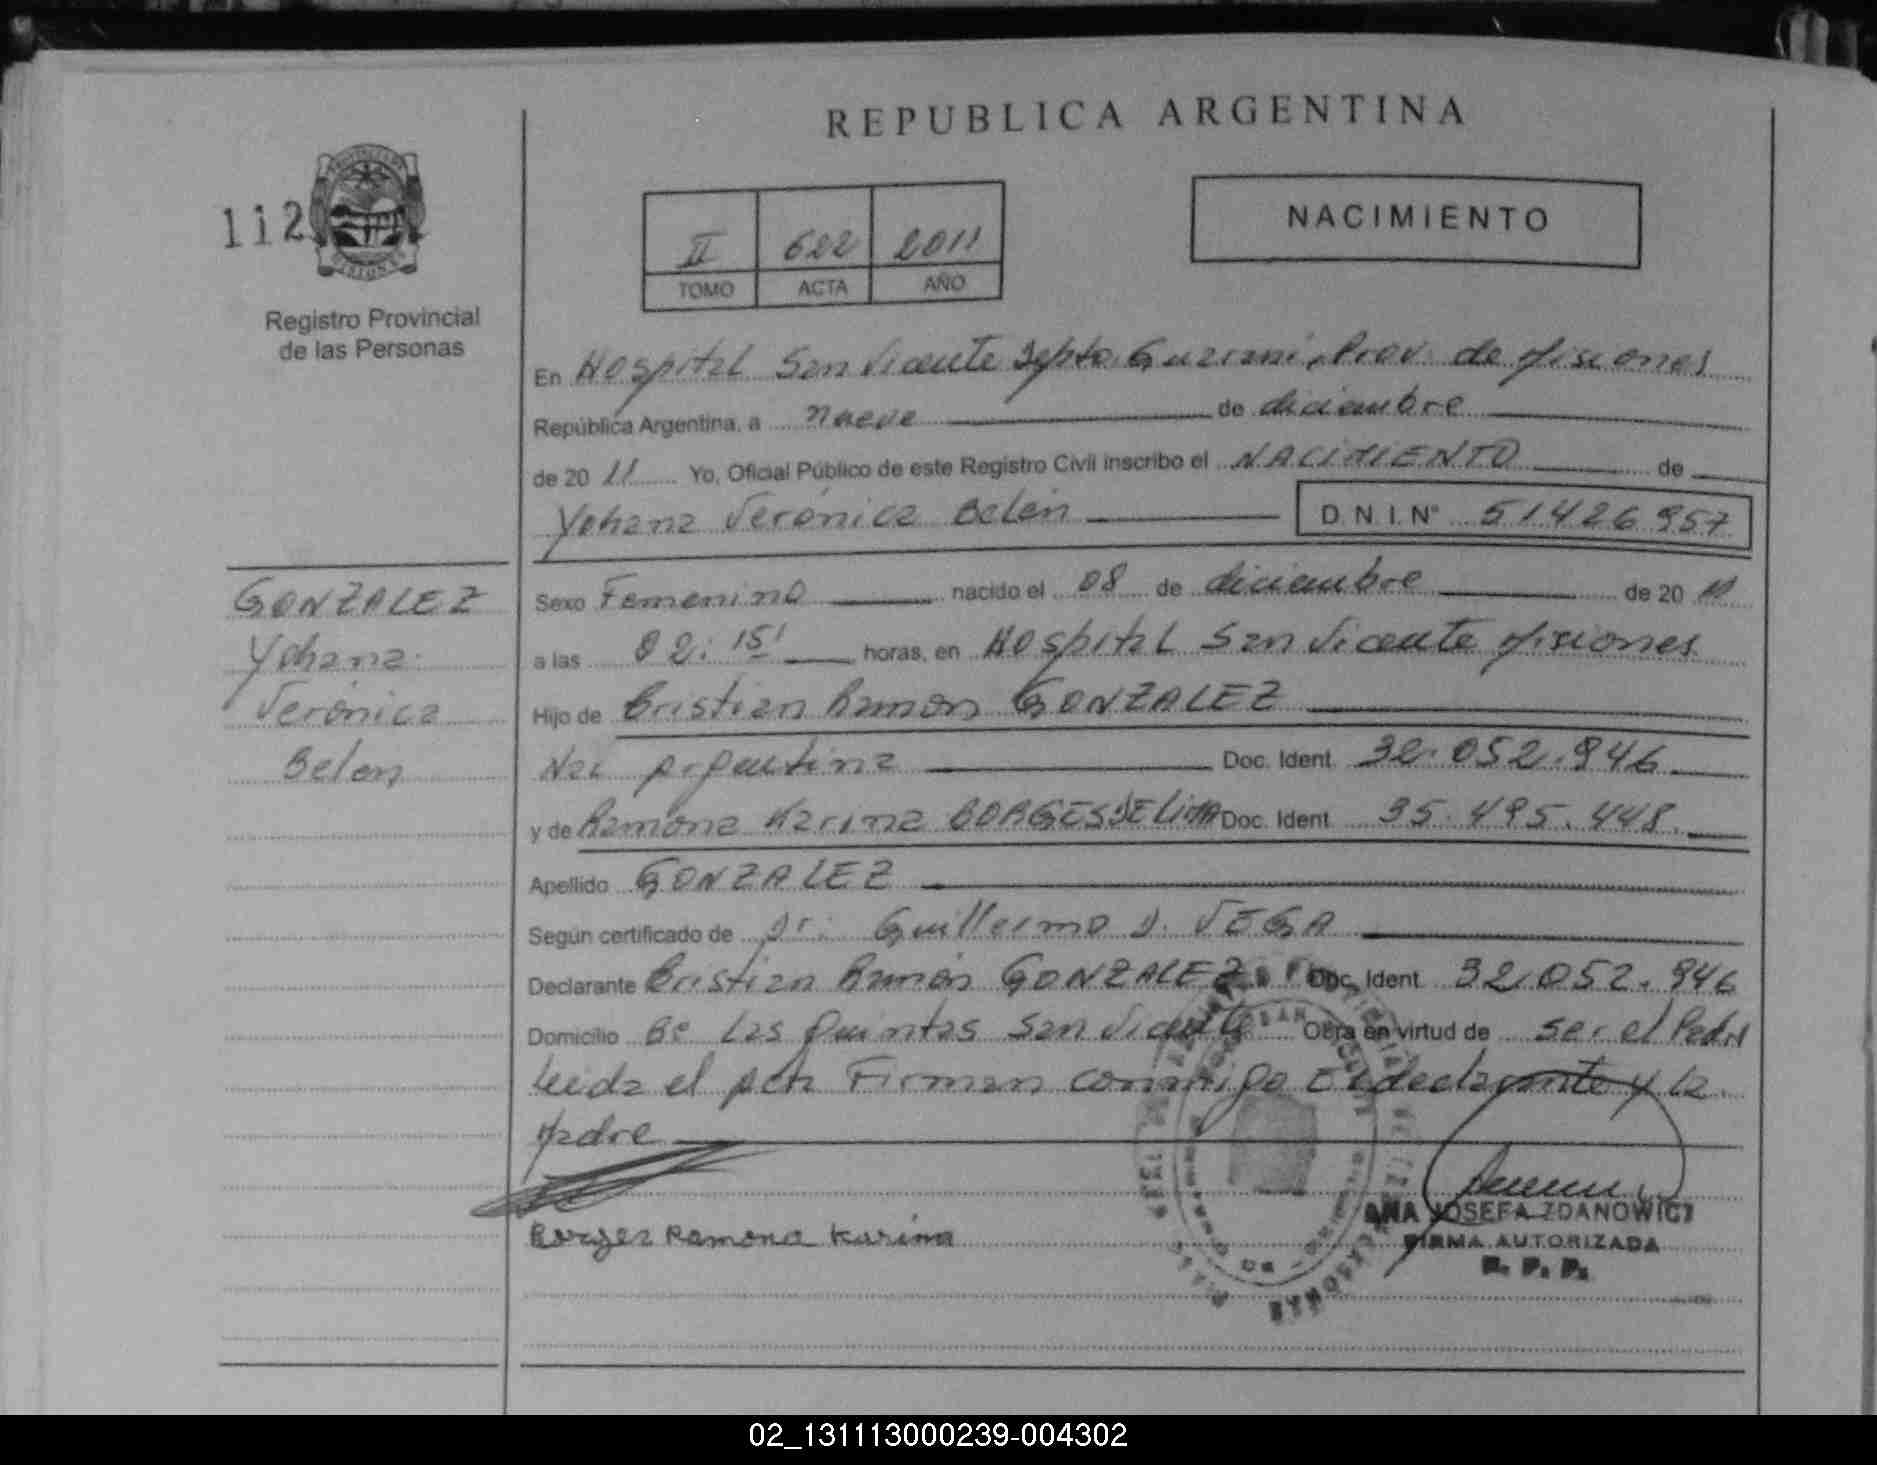 REPUBLICA ARGENTINA
112
PROVINCIA DE MISIONES
Registro Provincial
de las Personas
II 622 2011
TOMO ACTA AÑO
NACIMIENTO
En Hospital San Vicente Dpto. Guaraní, Prov. de Misiones
República Argentina, a nueve de diciembre
de 2011 Yo, Oficial Público de este Registro Civil inscribo el NACIMIENTO de
Yohana Verónica Belén D.N.I. Nº 51426957
GONZALEZ
Yohana
Verónica
Belen
Sexo Femenino nacido el 08 de diciembre de 2011
a las 02:15' horas, en Hospital San Vicente Misiones
Hijo de Cristian Ramón GONZALEZ
Nac Argentina Doc. Ident. 32.052.946
y de Ramona Karina BORGES DE LIMA Doc. Ident. 35.495.448.
Apellido GONZALEZ
Según certificado de Dr: Guillermo D. VEGA
Declarante Cristian Ramón GONZALEZ Doc. Ident. 32.052.946
Domicilio Bº Las Quintas San Vicente Obra en virtud de ser el Padre
leida el acta Firman conmigo El declarante y la
Madre
Borges Ramona Karina
ANA JOSEFA ZDANOWICZ
FIRMA AUTORIZADA
R. P. P.
02_131113000239-004302